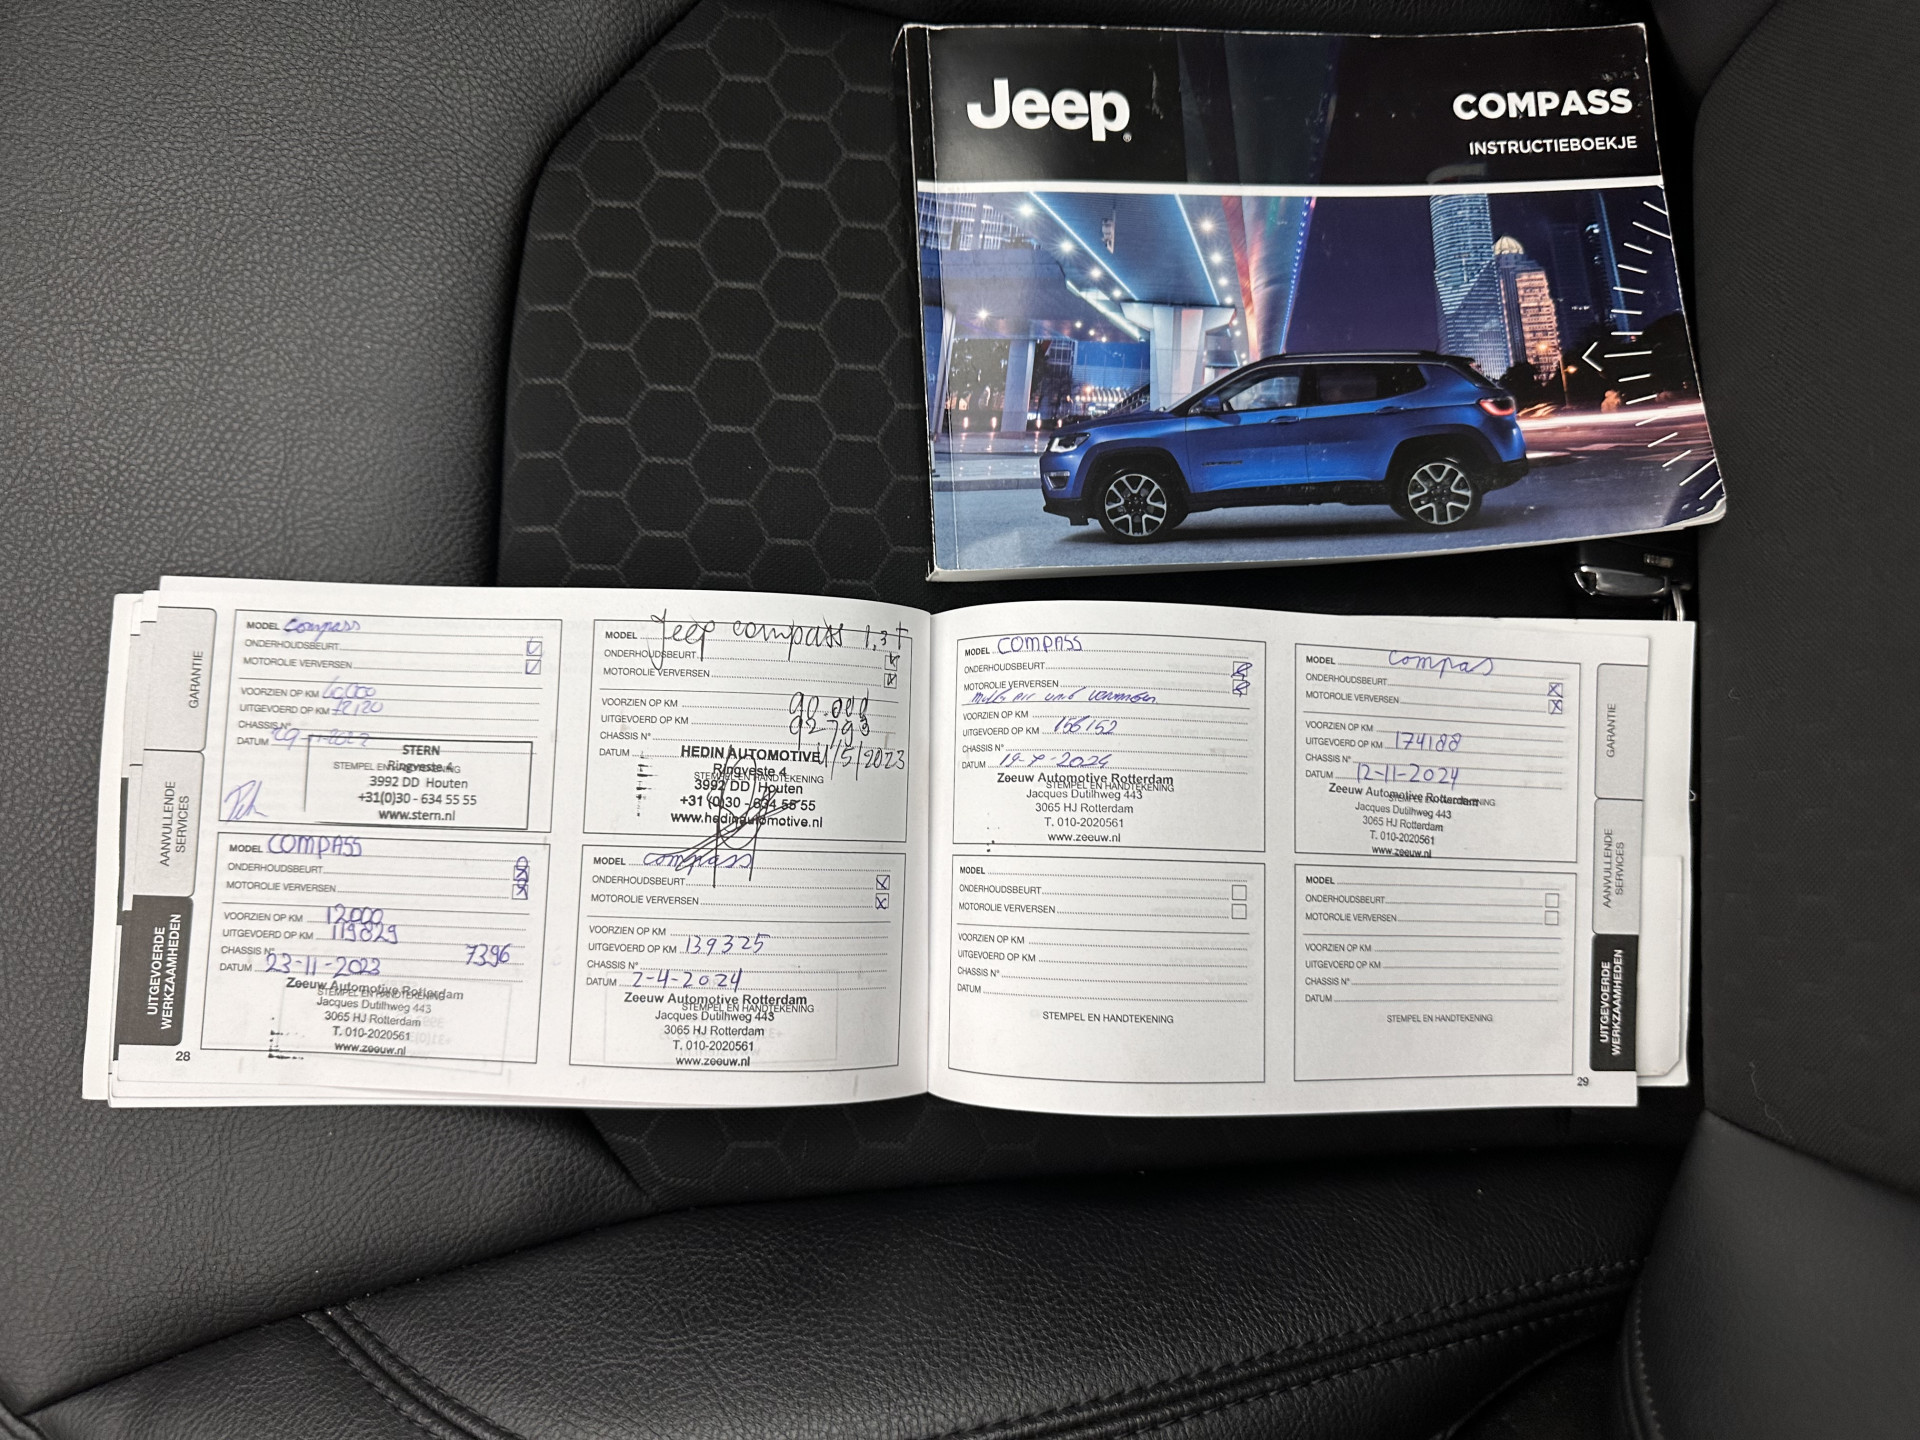 Jeep®
COMPASS
INSTRUCTIEBOEKJE
GARANTIE
AANVULLENDE
SERVICES
UITGEVOERDE
WERKZAAMHEDEN
28
MODEL Compass
ONDERHOUDSBEURT
MOTOROLIE VERVERSEN
VOORZIEN OP KM
UITGEVOERD OP KM 72120
CHASSIS N°
DATUM
STEMPEL EN HANDTEKENING
STERN
Ringveste 4
3992 DD Houten
+31(0)30 - 634 55 55
www.stern.nl
MODEL Jeep compass 1,3 t
ONDERHOUDSBEURT
MOTOROLIE VERVERSEN
VOORZIEN OP KM 90.000
UITGEVOERD OP KM 92.793
CHASSIS N°
DATUM 1/5/2023
STEMPEL EN HANDTEKENING
HEDIN AUTOMOTIVE
Ringveste 4
3992 DD Houten
+31 (0)30 - 634 55 55
www.hedinautomotive.nl
MODEL COMPASS
ONDERHOUDSBEURT
MOTOROLIE VERVERSEN
VOORZIEN OP KM 12000
UITGEVOERD OP KM 119829
CHASSIS N° 7396
DATUM 23-11-2023
STEMPEL EN HANDTEKENING
Zeeuw Automotive Rotterdam
Jacques Dutilhweg 443
3065 HJ Rotterdam
T. 010-2020561
www.zeeuw.nl
MODEL compass
ONDERHOUDSBEURT
MOTOROLIE VERVERSEN
VOORZIEN OP KM
UITGEVOERD OP KM 139325
CHASSIS N°
DATUM 2-4-2024
STEMPEL EN HANDTEKENING
Zeeuw Automotive Rotterdam
Jacques Dutilhweg 443
3065 HJ Rotterdam
T. 010-2020561
www.zeeuw.nl
MODEL COMPASS
ONDERHOUDSBEURT
MOTOROLIE VERVERSEN
VOORZIEN OP KM
UITGEVOERD OP KM 156152
CHASSIS N°
DATUM 19-7-2024
STEMPEL EN HANDTEKENING
Zeeuw Automotive Rotterdam
Jacques Dutilhweg 443
3065 HJ Rotterdam
T. 010-2020561
www.zeeuw.nl
MODEL Compas
ONDERHOUDSBEURT
MOTOROLIE VERVERSEN
VOORZIEN OP KM
UITGEVOERD OP KM 174188
CHASSIS N°
DATUM 12-11-2024
STEMPEL EN HANDTEKENING
Zeeuw Automotive Rotterdam
Jacques Dutilhweg 443
3065 HJ Rotterdam
T. 010-2020561
www.zeeuw.nl
MODEL
ONDERHOUDSBEURT
MOTOROLIE VERVERSEN
VOORZIEN OP KM
UITGEVOERD OP KM
CHASSIS N°
DATUM
STEMPEL EN HANDTEKENING
MODEL
ONDERHOUDSBEURT
MOTOROLIE VERVERSEN
VOORZIEN OP KM
UITGEVOERD OP KM
CHASSIS N°
DATUM
STEMPEL EN HANDTEKENING
GARANTIE
AANVULLENDE
SERVICES
UITGEVOERDE
WERKZAAMHEDEN
29